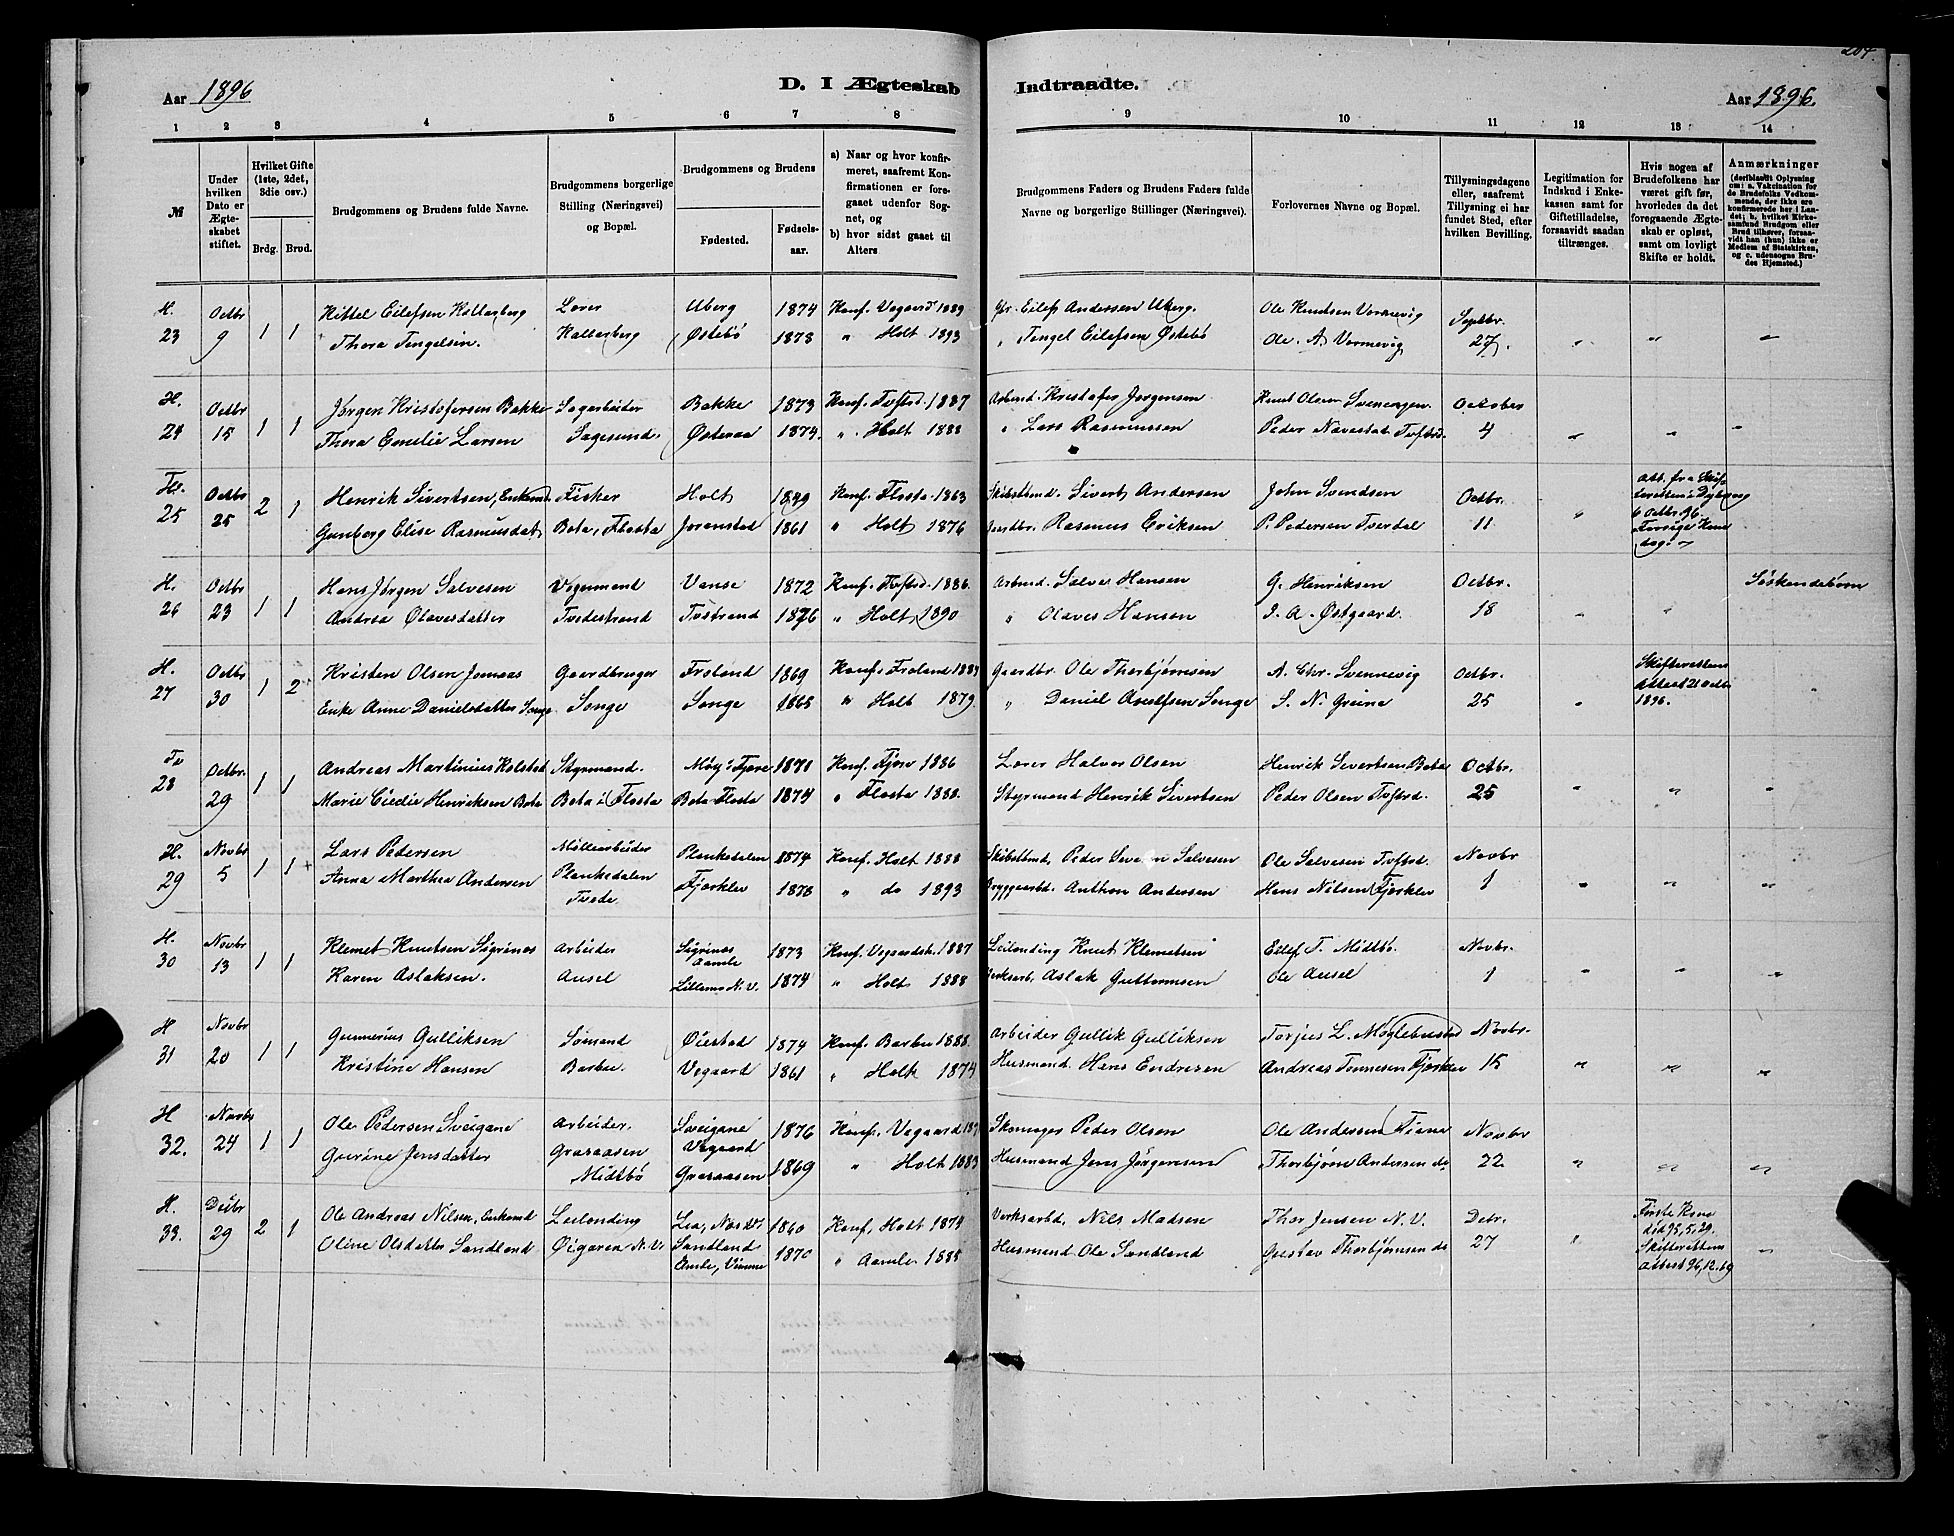 204.
Aar 1896
D. I Ægteskab Indtraadte.
Aar 1896.
1 2 3 4 5 6 7 8 9 10 11 12 13 14
№
Under hvilken Dato er Ægteskabet stiftet.
Hvilket Gifte (1ste, 2det, 3die osv.)
Brdg. Brud.
Brudgommens og Brudens fulde Navne.
Brudgommens borgerlige Stilling (Næringsvei) og Bopæl.
Brudgommens og Brudens
Fødested.
Fødselsaar.
a) Naar og hvor konfirmeret, saafremt Konfirmationen er foregaaet udenfor Sognet, og
b) hvor sidst gaaet til Alters
Brudgommens Faders og Brudens Faders fulde Navne og borgerlige Stillinger (Næringsvei).
Forlovernes Navne og Bopæl.
Tillysningsdagene eller, saafremt Tillysning ei har fundet Sted, efter hvilken Bevilling.
Legitimation for Indskud i Enkekassen samt for Giftetilladelse, forsaavidt saadan tiltrænges.
Hvis nogen af Brudefolkene har været gift før, hvorledes da det foregaaende Ægteskab er opløst, samt om lovligt Skifte er holdt.
Anmærkninger (deriblandt Oplysning om: a. Vakcination for de Brudefolks Vedkommende, der ikke ere konfirmerede her i Landet; b. hvilket Kirkesamfund Brudgom eller Brud tilhører, forsaavidt han (hun) ikke er Medlem af Statskirken, og c. udensogns Brudes Hjemsted.)
H. Octbr Kittel Eilefsen Kallarberg Lærer Uberg 1874 Konf. Vegaard 1889 Eilef Andersen Uberg. Ole Knudsen Vormevig Septbr.
23 9 1 1 Thora Tengelsen. Kallarberg Østebø 1873 " Holt 1893 " Tengel Eilefsen Østebø Ole A. Vormevig 27. " " "
H. Octbr Jørgen Kristofersen Bakke Sagarbeider Bakke 1873 Konf. Tvftsd. 1887 Arbmd. Kristofer Jørgensen Knut Olsen October
24 15 1 1 Thora Emelie Larsen Sagesund Østeraa 1874. " Holt 1888 " Lars Rasmussen Peder Navestad Tvftsd. 4 " " "
25 Octbr 25 2 1 Henrik Sivertsen, Enkemd. Fisker Holt 1849 Konf. Flosta 1863 Skibstbmd. Sivert Andersen John Svendsen Octbr. Att. fra Skifteretten i Dypvaag 6 Octbr. 96.
Gunborg Elise Rasmusdat. Bota, Flosta Joranstad 1861 " Holt 1876 Gaardbr. Rasmus Eriksen P. Pedersen Tverdal 11 "
H. Octbr Hans Jørgen Salvesen Vognmand Vanse 1872 Konf. Tvftsd. 1886. Arbmd. Salve Hansen G. Henriksen Octbr. Søskendebørn
26 23 1 1 Andrea Olavesdatter Tvedestrand Tvstrand 1876 " Holt 1890 " Olaves Hansen J. A. Østgaard. 18 " "
H. Octbr Kristen Olsen Jomaas Gaardbruger Froland 1869 Konf. Froland 1884 Gaardbr. Ole Thorbjørnsen A. Chr. Svennevig Octbr. Skifterettens Attest 21 Octbr 1896.
27 30 1 2 Enke Anne Danielsdatter Songe Songe Songe 1865 " Holt 1879. " Daniel Songe S. N. Greina 25 "
28 Octbr. 29 1 1 Andreas Martinius Kolstad Styrmand. Møy i Fjære 1871 Konf. Fjære 1886 Lærer Halvor Olsen Henrik Sivertsen Bota Octbr.
Marie Cicilie Henriksen Bota Bota i Flosta Bota Flosta 1874 " Flosta 1888. Styrmand Henrik Sivertsen Peder Olsen Tvftsd. 25 " " "
H. Novbr Lars Pedersen Møllearbeider Plankedalen 1874 Konf. Holt 1888 Skibstbmd. Peder Salvesen Ole Salvesen Tvftsd. Novbr
29 5 1 1 Anna Marthea Andersen Plankedalen Tvede. Fjærkler 1873 " do 1893 Bryggearbd. Anthon Andersen Hans Nilsen Fjærkler 1 " " "
H. Novbr Klemet Knutsen Sigrinas Arbeider Sigrinas Aamle 1873 Konf. Vegaardsh. 1887 Leilending Knut Klemetsen Eilef T. Midtbø. Novbr.
30 13 1 1 Karen Aslaksen. Ausel Lillemo N.V. 1874 " Holt 1888 Verksarb. Aslak Guttormsen Ole Ausel 1 " " "
H Novbr Gunnerius Gulliksen Sømand Øiestad 1874 Konf. Barbu 1888. Arbeider Gullik Gulliksen Torjus L. Møglebustad Novbr.
31 20 1 1 Kristine Hansen Barbu. Vegaard 1861 " Holt 1874 Husmand Hans Endresen Andreas Tønnesen Fjærkler 15 " " "
H Novbr Ole Pedersen Sveigane Arbeider. Sveigane Vegaard 1876 Konf. Vegaard Skomager Peder Olsen Ole Andersen Fiane Novbr
32. 24 1 1 Gurine Jensdatter Graraasen Midtbø Graraasen 1869 " Holt 1883 Husmand Jens Jørgensen Thorbjørn Andersen do 22 " " "
H. Decbr Ole Andreas Nilsen, Enkemd Leilending Lia, Næs V. 1860 Konf. Holt 1874 Verksarbd. Nils Madsen Thor Jensen N. V. Decbr. Første Kone død 95, 5, 29. Skifterettens Attest 96, 12, 19
33. 29 2 1 Oline Olsdatter Sandland Øigaren N. V. Sandland Amle, Vimme 1870 " Aamle 1885 Husmand Ole Sandland Gustav Thorbjørnsen do 27 " "